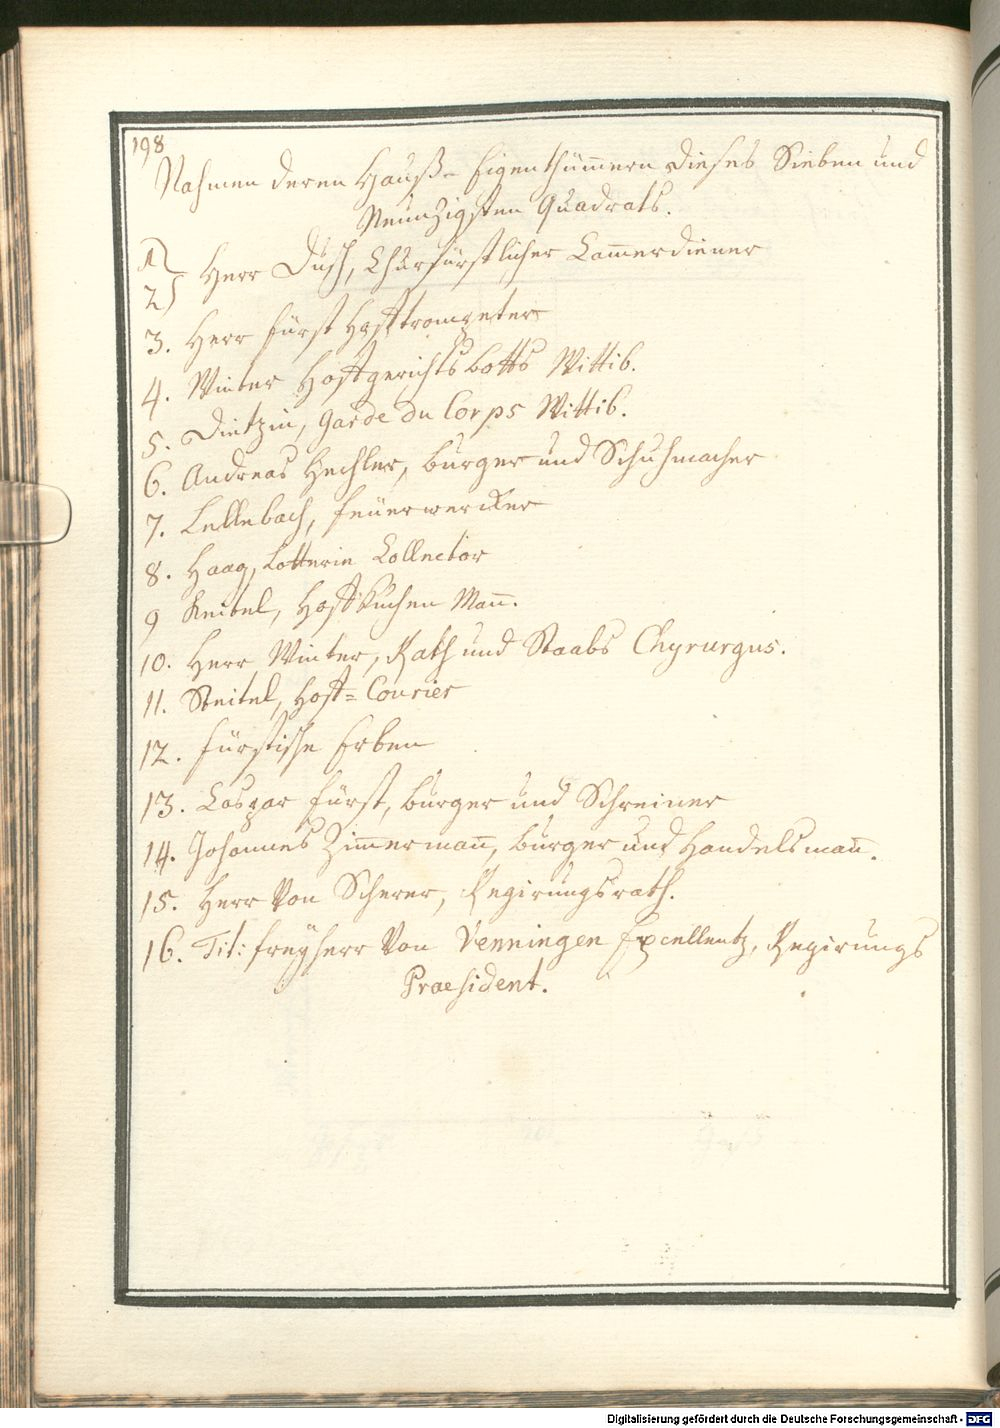 198
Nahmen deren Hauß- Eigenthümern dieses Sieben und
Neunzigsten Quadrats.
1)
2) Herr Dusch, Churfürstlicher Cam̄erdiener
3. Herr Fürst Hofftrompeter
4. Winter Hoffgerichts botts Wittib.
5. Dietzin, Garde du Corps Wittib.
6. Andreas Hechler, burger und Schuhmacher
7. Lellebach, Feüerwercker
8. Haag, Lotterie Collector
9 Keitel, Hoffkuchen Man̄.
10. Herr Winter, Rath und Staabs Chyrurgus.
11. Reitel, Hoff= Courier
12. Fürstische Erben
13. Caspar Fürst, burger und Schreiner
14. Johannes Zim̄erman̄, burger und Handelsman̄.
15. Herr Von Scherer, Regirungsrath.
16. Tit: Freÿherr Von Venningen Excellentz, Regirungs
Praesident.
Digitalisierung gefördert durch die Deutsche Forschungsgemeinschaft - DFG